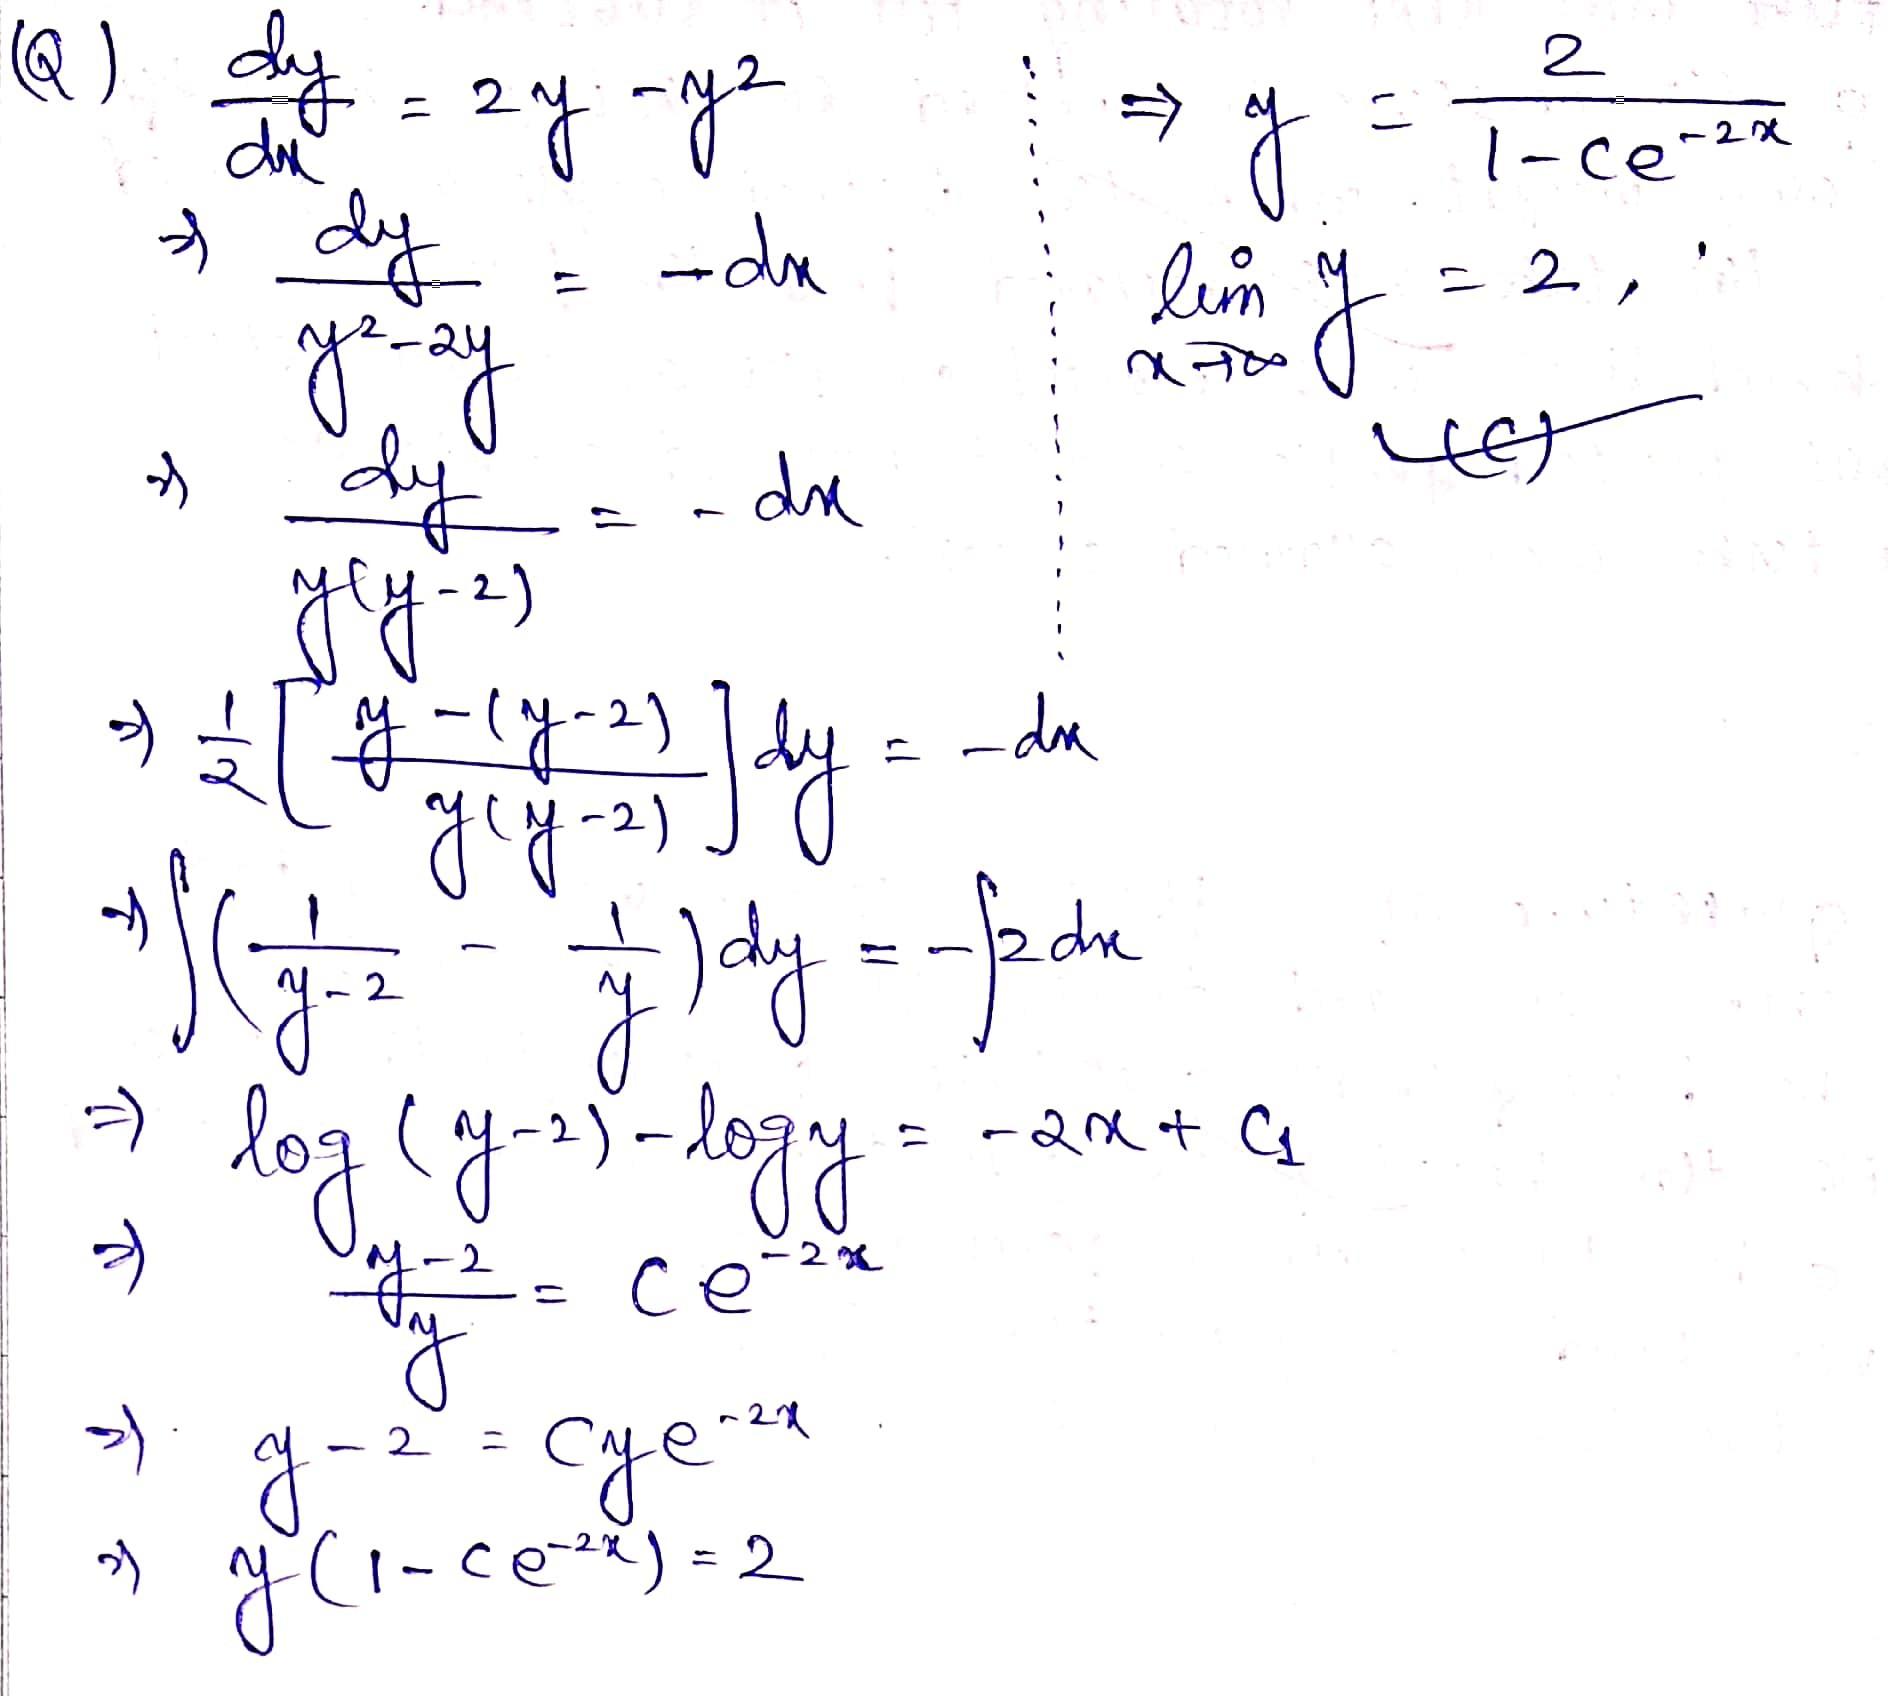 (Q) dy/dx = 2y - y²
⇒ dy/(y²-2y) = -dx
⇒ dy/(y(y-2)) = -dx
⇒ 1/2 [ (y-(y-2))/(y(y-2)) ] dy = -dx
⇒ ∫(1/(y-2) - 1/y) dy = -∫2dx
⇒ log(y-2) - logy = -2x + C₁
⇒ (y-2)/y = ce^(-2x)
⇒ y-2 = cye^(-2x)
⇒ y(1-ce^(-2x)) = 2
⇒ y = 2/(1-ce^(-2x))
lim x→∞ y = 2,
(C)